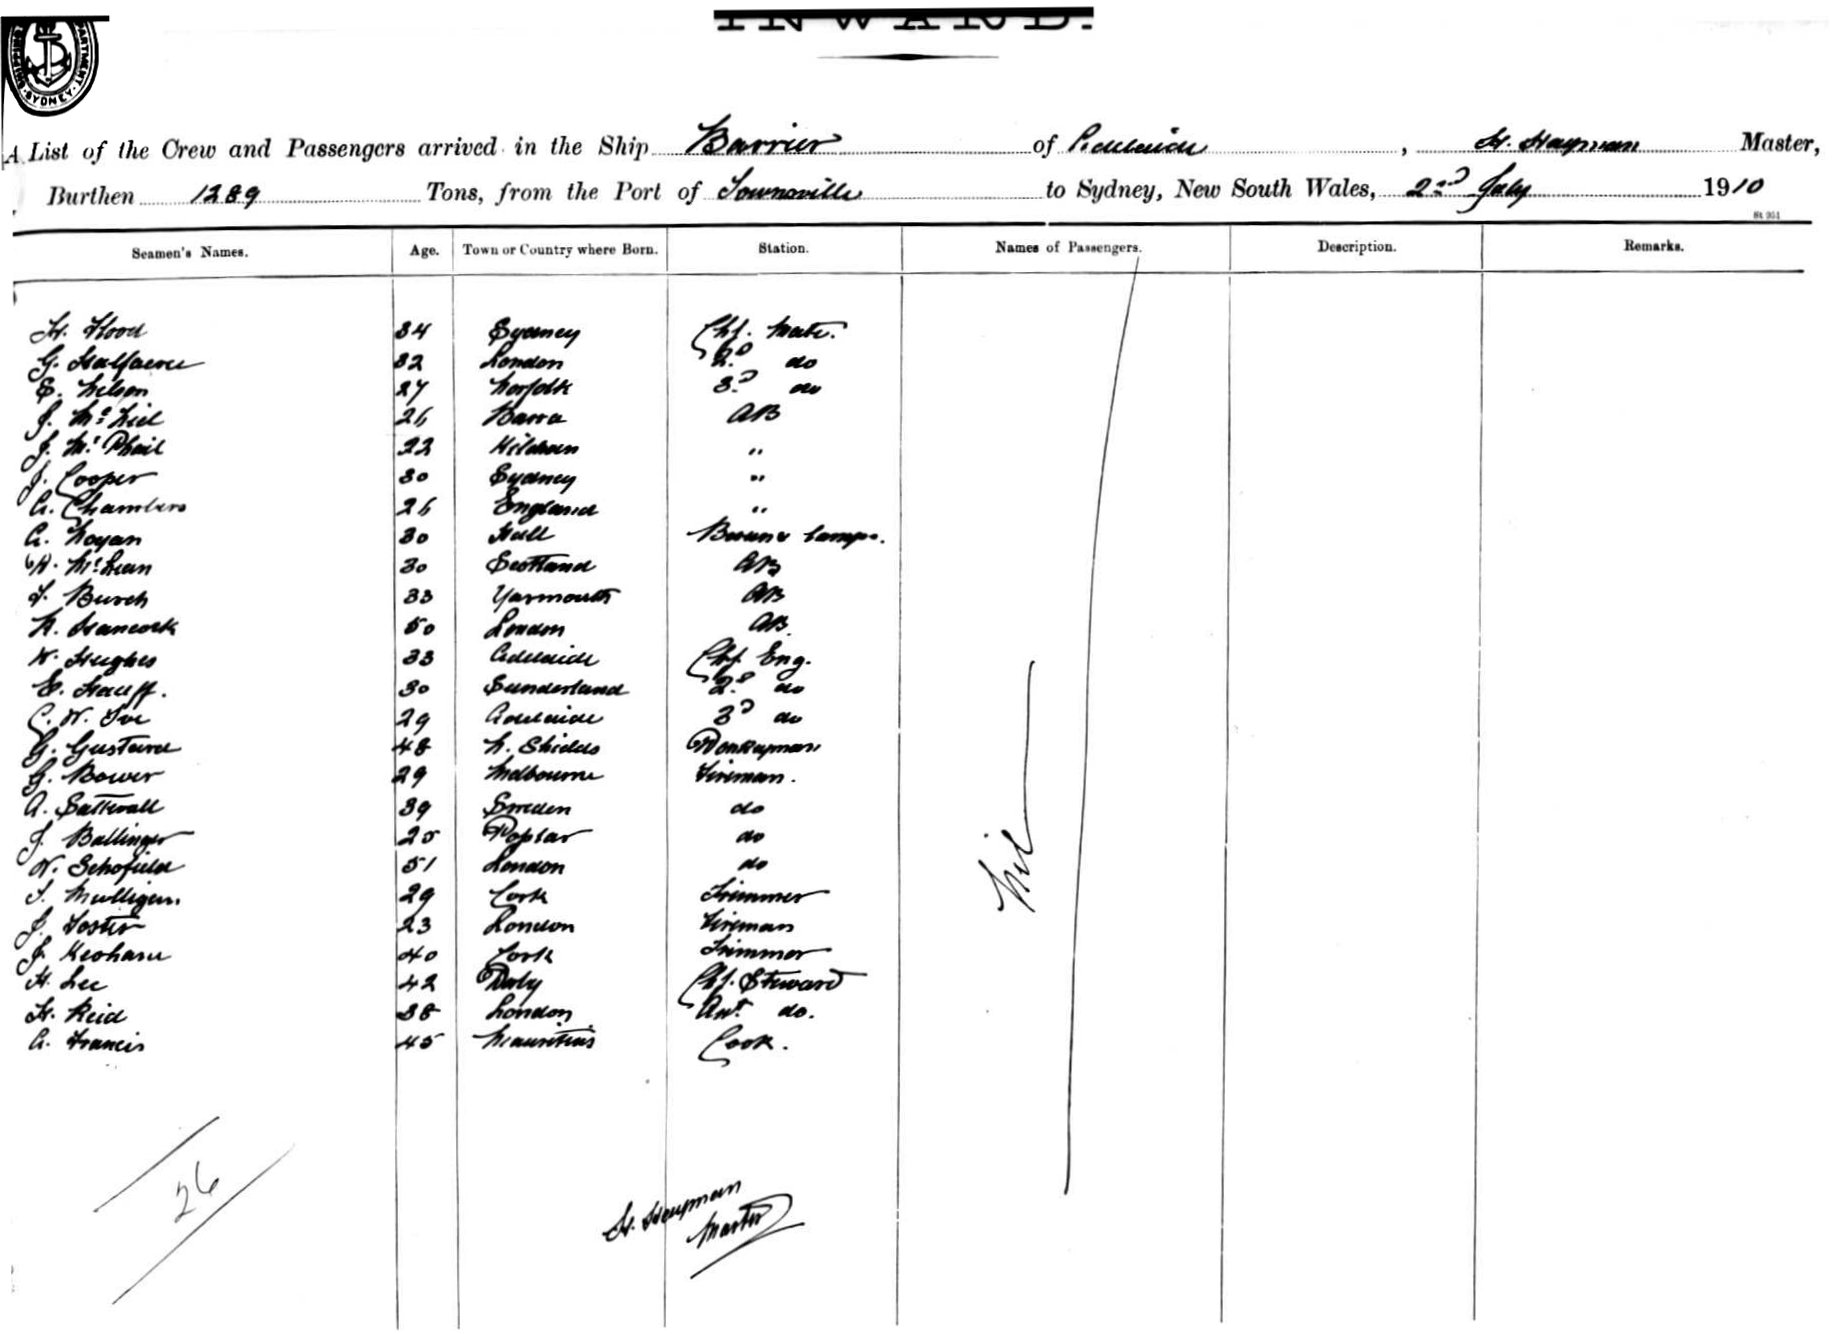 SHIPPING DEPARTMENT SYDNEY
INWARD.
A List of the Crew and Passengers arrived in the Ship Barrier of Adelaide, H. Hayman Master,
Burthen 1289 Tons, from the Port of Townsville to Sydney, New South Wales, 2nd July 1910
Seamen's Names. Age. Town or Country where Born. Station. Names of Passengers. Description. Remarks.
H. Hood 34 Sydney Chf. Mate.
G. Halfacre 32 London 2nd do
E. Wilson 27 Norfolk 3rd do
J. McNeil 26 Barra AB
J. McPhail 22 "
J. Cooper 30 Sydney "
A. Chambers 26 England "
A. 30 Hull Bosun & Lamps.
McLean 30 Scotland AB
T. Burch 33 Yarmouth AB
Hancock 50 London AB.
W. Hughes 33 Adelaide Chf. Eng.
E. 30 Sunderland 2nd do
C. W. 29 Adelaide 3rd do
G. 48 N. Shields Donkeyman
G. Bower 29 Melbourne Fireman.
A. 39 Sweden do
J. Ballinger 25 Poplar do
W. Schofield 51 London do
T. Mulligan 29 Cork Trimmer
J. Foster 23 London Fireman
J. Keohane 40 Cork Trimmer
H. Lee 42 Derby Chf. Steward
H. Reid 38 London Asst. do.
A. Francis 45 Mauritius Cook.
Nil
26
H. Hayman
Master